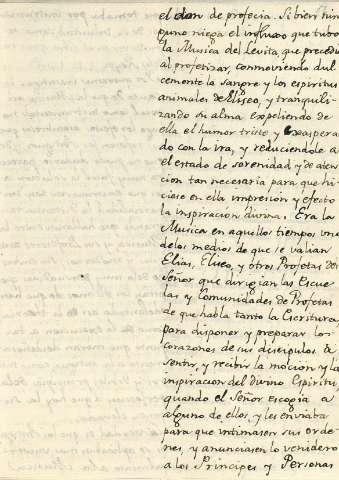 el don de profecia. Si bien nin
guno niega el influxo que tubo
la Musica del Levita, que precedio
al profetizar, conmoviendo dul
cemente la sangre y los espiritus
animales de Eliseo, y tranquili
zando su alma expeliendo de
ella el humor triste y exaspera
do con la ira, y reduciendole a
el estado de serenidad, y de aten
cion tan necesaria para que hi
ciese en ella impresion y efecto
la inspiracion divina. Era la
Musica en aquellos tiempos uno
delos medios de que se valian
Elias, Eliseo, y otros Profetas del
Señor que dirigian las Escue
las y Comunidades de Profetas
de que habla tanto la Escritura,
para disponer y preparar los
corazones de sus discipulos à
sentir, y recibir la mocion y la
inspiracion del divino Espiritu,
quando el Señor escogia a
alguno de ellos, y les enviaba
para que intimasen sus orde
nes, y anunciasen lo venidero
a los Principes y Personas